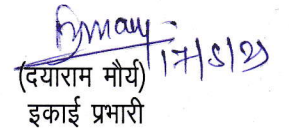 17/5/23
(दयाराम मौर्य)
इकाई प्रभारी